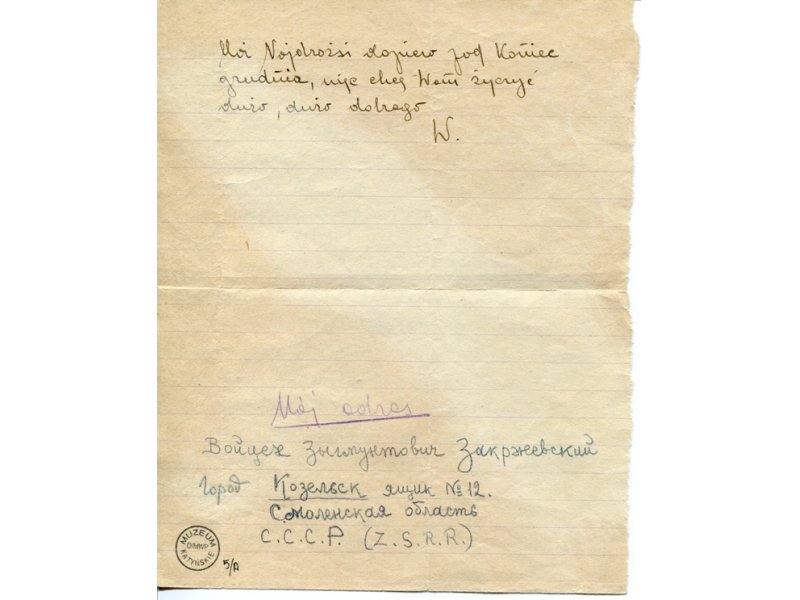 Moi Najdrożsi dopiero pod Koniec
grudnia, więc chcę Wam życzyć
dużo, dużo dobrego
W.
Mój adres
Войцех Зыгмунтович Закржевский
город Козельск ящик №12.
Смоленская область
С.С.С.Р. (Z.S.R.R.)
MUZEUM KATYŃSKIE
5/A